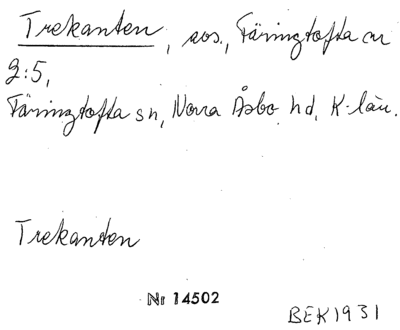 Trekanten, avs., Färingtofta nr
2:5,
Färingtofta sn, Norra Åsbo hd, K-län.
Trekanten
Nr 14502
BEK1931